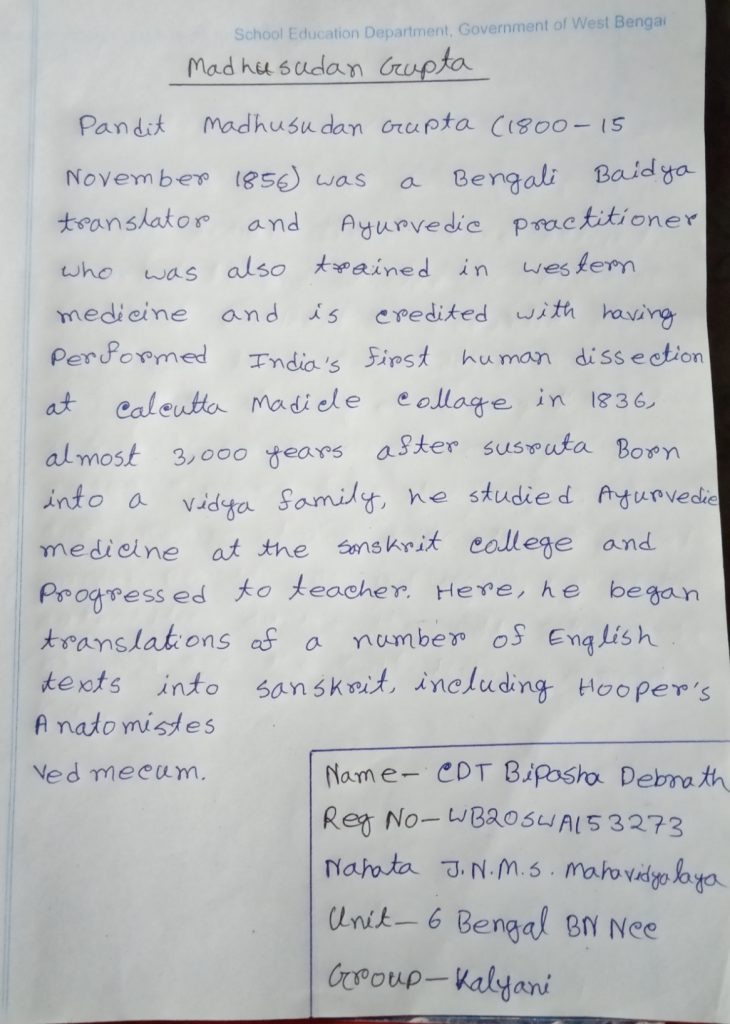 School Education Department, Government of West Bengal
Madhusudan Gupta
Pandit Madhusudan Gupta (1800-15
November 1856) was a Bengali Baidya
translator and Ayurvedic practitioner
who was also trained in western
medicine and is credited with having
Performed India's first human dissection
at Calcutta Madicle Collage in 1836,
almost 3,000 years after susruta Born
into a vidya family, he studied Ayurvedic
medicine at the sanskrit college and
Progressed to teacher. Here, he began
translations of a number of English
texts into sanskrit, including Hooper's
Anatomistes
Ved mecum.
Name- CDT Biposha Debnath
Reg No- WB20SWA153273
Nahata J.N.M.S. Mahavidyalaya
Unit- 6 Bengal BN Ncc
Group- Kalyani